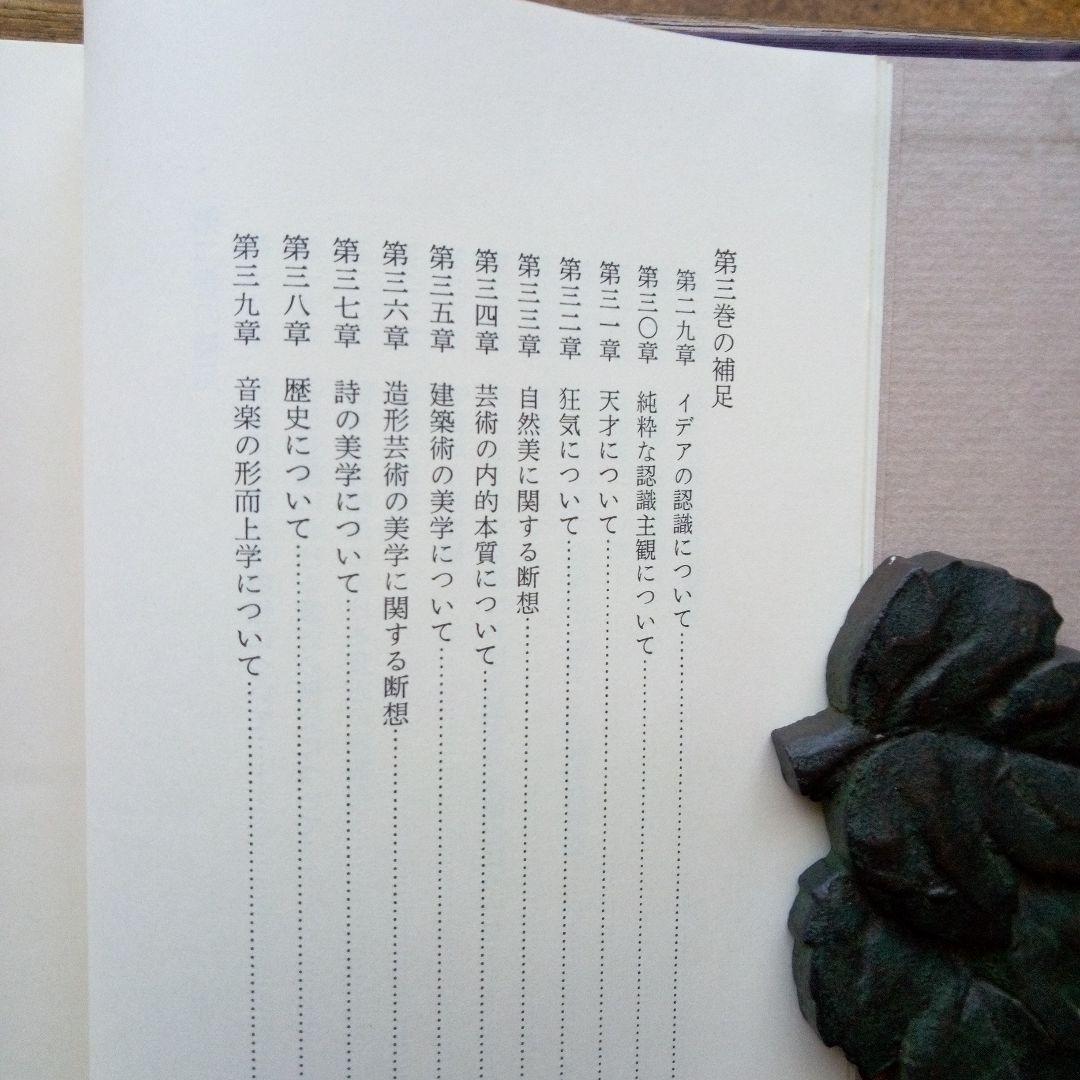 第三巻の補足
第二九章 イデアの認識について
第三〇章 純粋な認識主観について
第三一章 天才について
第三二章 狂気について
第三三章 自然美に関する断想
第三四章 芸術の内的本質について
第三五章 建築術の美学について
第三六章 造形芸術の美学に関する断想
第三七章 詩の美学について
第三八章 歴史について
第三九章 音楽の形而上学について